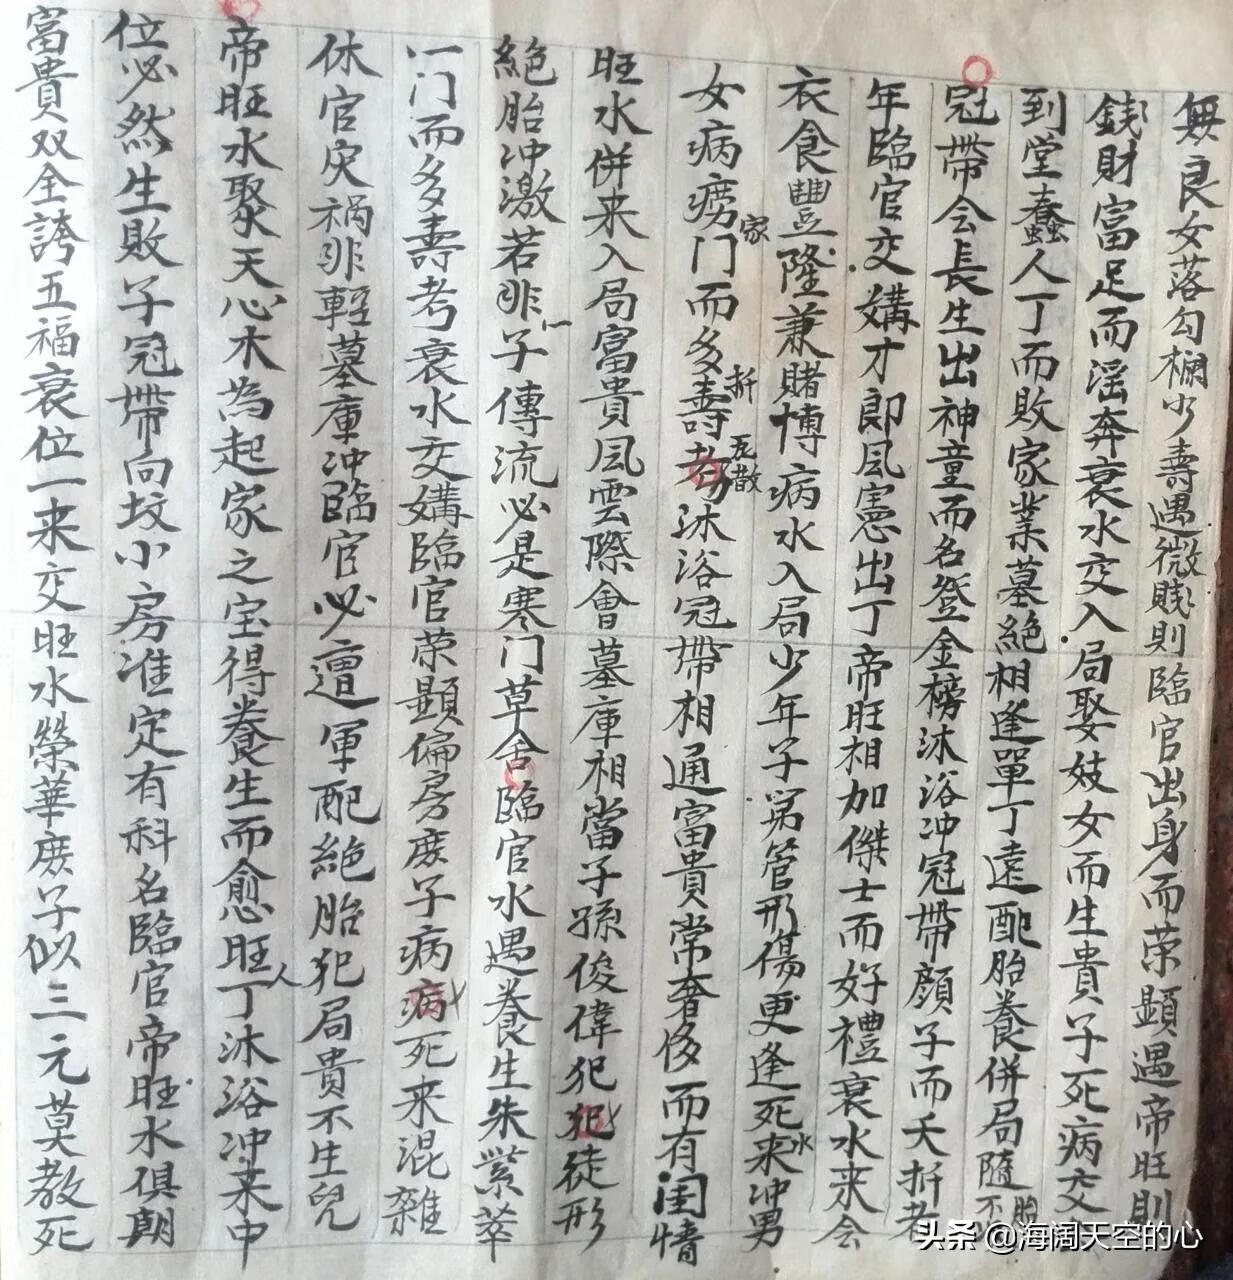 無良女落勾欄少壽遇微賤則臨官出身而荣顕遇帝旺則
錢財富足而淫奔衰水交入局娶妓女而生貴子死病交
到堂蠢人丁而敗家業墓絶相逢單丁遠配胎養併局隨胎不
冠帶会長生出神童而名登金榜沐浴冲冠帶顔子而夭折者
年臨官交媾才郎風憲出丁帝旺相加傑士而好禮衰水来会
衣食豐隆兼賭博病水入局少年子弟管形傷更逢死来水冲男
女病痨门家而多壽折考五散沐浴冠帶相通富貴常奢侈而有闺情
旺水併来入局富貴風雲際會墓庫相當子孫俊偉犯犯徒形
絶胎冲激若非一子傳流必是寒门草舍臨官水遇養生朱紫萃
一门而多壽考衰水交媾臨官荣顕偏房庻子病病死来混雜
休官灾禍非輕墓庫冲臨官必遭軍配絶胎犯局貴不生兒
帝旺水聚天心木為起家之宝得養生而愈旺人丁沐浴冲来中
位必然生敗子冠帶向坟小房准定有科名臨官帝旺水俱朝
富貴双全誇五福衰位一来交旺水榮華庻子似三元莫教死
头条 @海阔天空的心